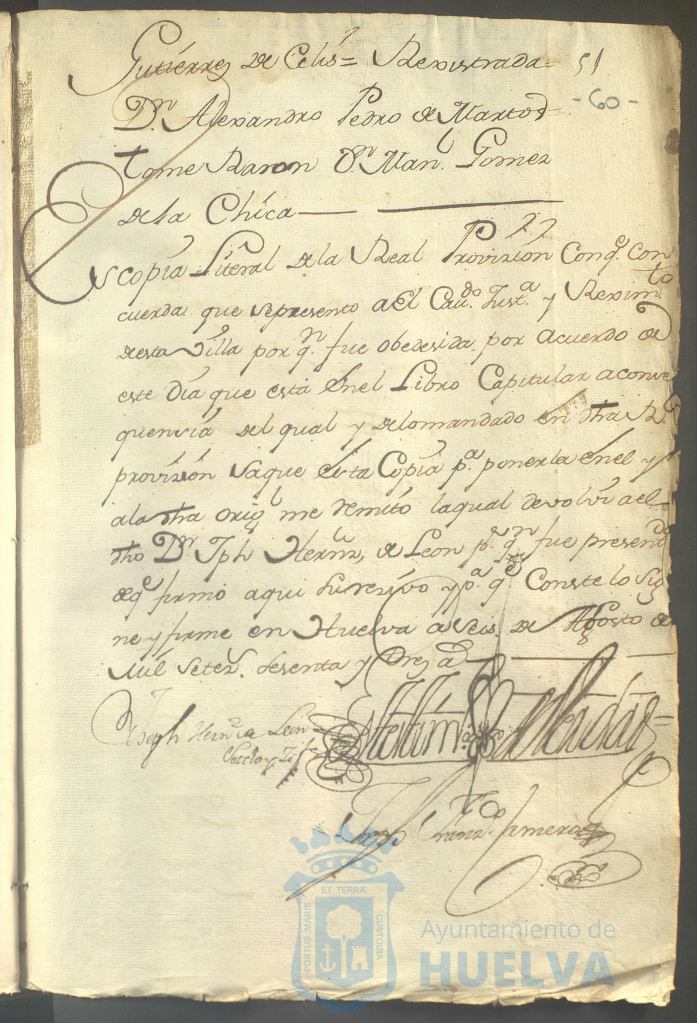 Gutiérrez de Celis = Rexistrada = 51
Dn. Alexandro Pedro de Martos
- 60 -
tome Razon Dn. Manl. Gomez
de la Chica
Es copia Literal de la Real Provizion Conq.e con
cuerda que se presento a el Cavdo. Justa. y Reximto.
de esta Villa por qn. fue obedesida por acuerdo de
este Dia que está en el Libro Capitular a conse
quencia del qual y de lo mandado en dha Rl.
provizion saque esta Copia pa. ponerla en el y
a la dha origl. me remito la qual devolvi a el
dho Dn. Jph Hernz. de Leon pr. qn. fue presentda
de qe. firmó aqui su resivo y pa. qe. Conste lo sig
ne y firme en Huelva a seis de Agosto de
mil setez. sesenta y trez as.
Joseph Hernz. de Leon
En testim.o de Verdad =
Franco.
PORTUS MARIS ET TERRÆ CUSTODIA
Ayuntamiento de
HUELVA